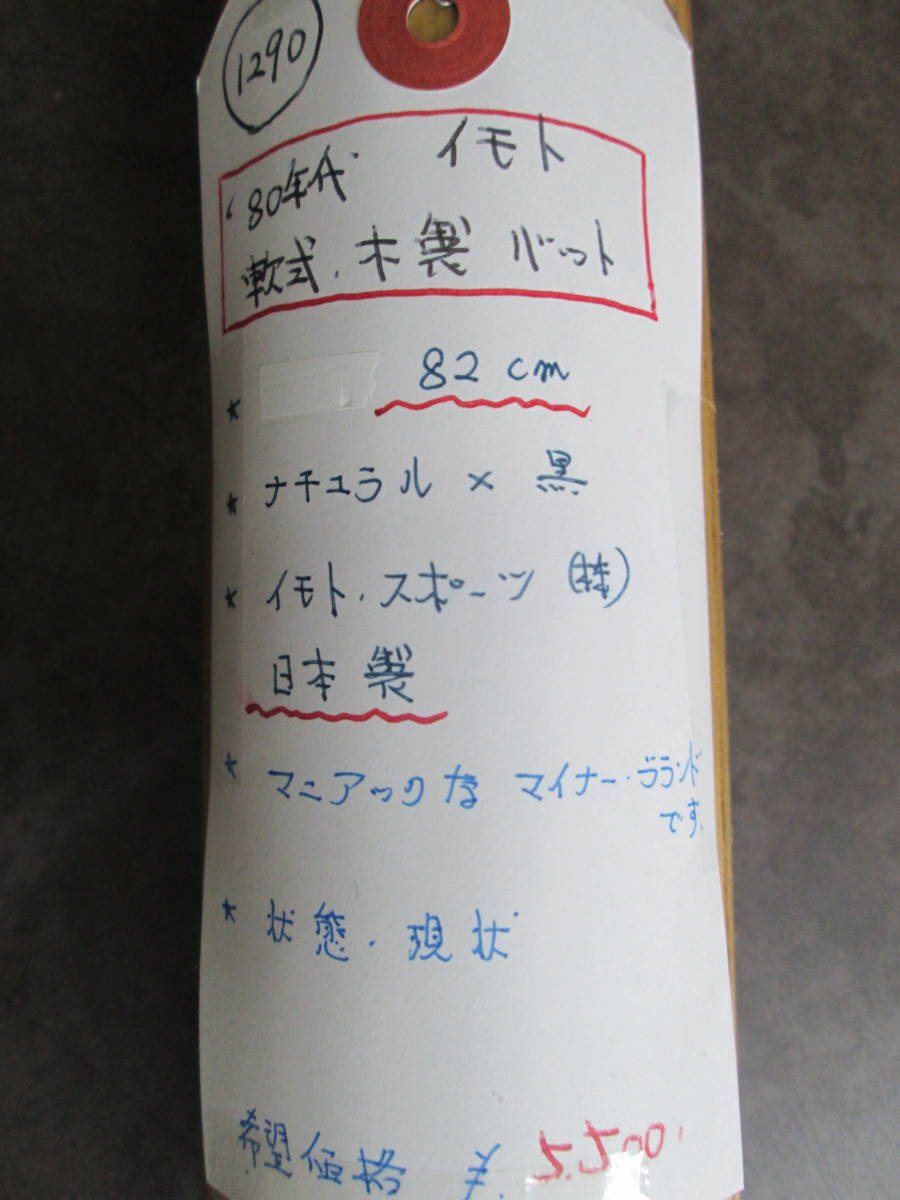 1290
'80年代 イモト
軟式.木製 バット
* 82cm
* ナチュラル × 黒
* イモト.スポーツ (株)
日本製
* マニアックな マイナー.ブランド
です.
* 状態.現状
希望価格 ¥. 5.500'